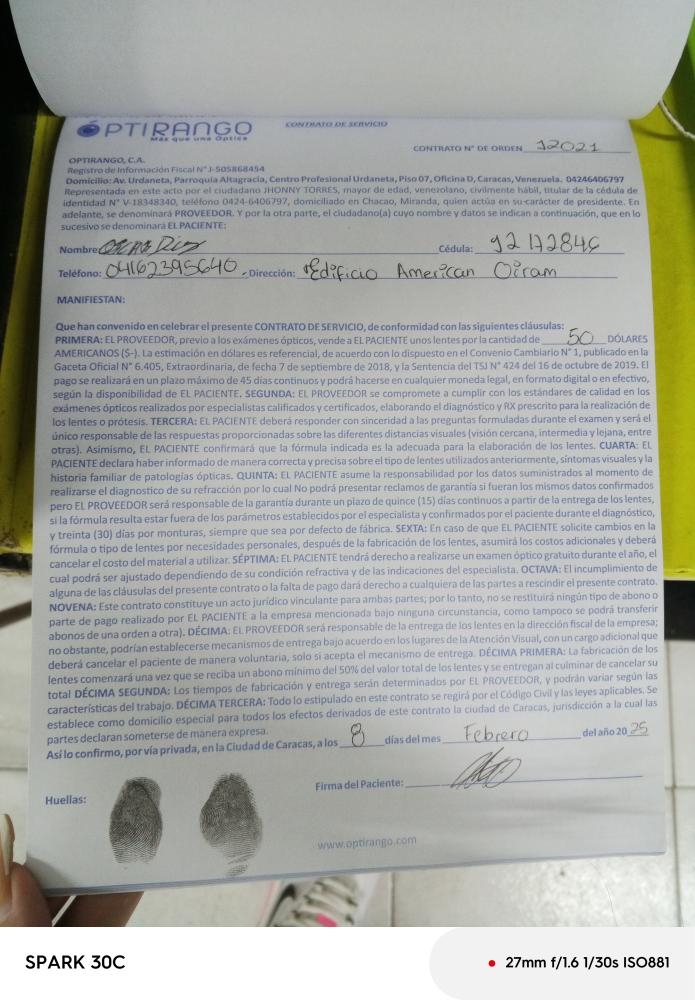 ÓPTIRANGO
Más que una Óptica
CONTRATO DE SERVICIO
CONTRATO N° DE ORDEN 12021
OPTIRANGO, C.A.
Registro de Información Fiscal N° J-505868454
Domicilio: Av. Urdaneta, Parroquia Altagracia, Centro Profesional Urdaneta, Piso 07, Oficina D, Caracas, Venezuela. 04246406797
Representada en este acto por el ciudadano JHONNY TORRES, mayor de edad, venezolano, civilmente hábil, titular de la cédula de
identidad N° V-18348340, teléfono 0424-6406797, domiciliado en Chacao, Miranda, quien actúa en su carácter de presidente. En
adelante, se denominará PROVEEDOR. Y por la otra parte, el ciudadano(a) cuyo nombre y datos se indican a continuación, que en lo
sucesivo se denominará EL PACIENTE:
Nombre: Cédula: 12172846
Teléfono: 04162395640. Dirección: Edificio American Oiram
MANIFIESTAN:
Que han convenido en celebrar el presente CONTRATO DE SERVICIO, de conformidad con las siguientes cláusulas:
PRIMERA: EL PROVEEDOR, previo a los exámenes ópticos, vende a EL PACIENTE unos lentes por la cantidad de 50 DÓLARES
AMERICANOS ($-). La estimación en dólares es referencial, de acuerdo con lo dispuesto en el Convenio Cambiario N° 1, publicado en la
Gaceta Oficial N° 6.405, Extraordinaria, de fecha 7 de septiembre de 2018, y la Sentencia del TSJ N° 424 del 16 de octubre de 2019. El
pago se realizará en un plazo máximo de 45 días continuos y podrá hacerse en cualquier moneda legal, en formato digital o en efectivo,
según la disponibilidad de EL PACIENTE. SEGUNDA: EL PROVEEDOR se compromete a cumplir con los estándares de calidad en los
exámenes ópticos realizados por especialistas calificados y certificados, elaborando el diagnóstico y RX prescrito para la realización de
los lentes o prótesis. TERCERA: EL PACIENTE deberá responder con sinceridad a las preguntas formuladas durante el examen y será el
único responsable de las respuestas proporcionadas sobre las diferentes distancias visuales (visión cercana, intermedia y lejana, entre
otras). Asimismo, EL PACIENTE confirmará que la fórmula indicada es la adecuada para la elaboración de los lentes. CUARTA: EL
PACIENTE declara haber informado de manera correcta y precisa sobre el tipo de lentes utilizados anteriormente, síntomas visuales y la
historia familiar de patologías ópticas. QUINTA: EL PACIENTE asume la responsabilidad por los datos suministrados al momento de
realizarse el diagnostico de su refracción por lo cual No podrá presentar reclamos de garantía si fueran los mismos datos confirmados
pero EL PROVEEDOR será responsable de la garantía durante un plazo de quince (15) días continuos a partir de la entrega de los lentes,
si la fórmula resulta estar fuera de los parámetros establecidos por el especialista y confirmados por el paciente durante el diagnóstico,
y treinta (30) días por monturas, siempre que sea por defecto de fábrica. SEXTA: En caso de que EL PACIENTE solicite cambios en la
fórmula o tipo de lentes por necesidades personales, después de la fabricación de los lentes, asumirá los costos adicionales y deberá
cancelar el costo del material a utilizar. SÉPTIMA: EL PACIENTE tendrá derecho a realizarse un examen óptico gratuito durante el año, el
cual podrá ser ajustado dependiendo de su condición refractiva y de las indicaciones del especialista. OCTAVA: El incumplimiento de
alguna de las cláusulas del presente contrato o la falta de pago dará derecho a cualquiera de las partes a rescindir el presente contrato.
NOVENA: Este contrato constituye un acto jurídico vinculante para ambas partes; por lo tanto, no se restituirá ningún tipo de abono o
parte de pago realizado por EL PACIENTE a la empresa mencionada bajo ninguna circunstancia, como tampoco se podrá transferir
abonos de una orden a otra). DÉCIMA: EL PROVEEDOR será responsable de la entrega de los lentes en la dirección fiscal de la empresa;
no obstante, podrían establecerse mecanismos de entrega bajo acuerdo en los lugares de la Atención Visual, con un cargo adicional que
deberá cancelar el paciente de manera voluntaria, solo si acepta el mecanismo de entrega. DÉCIMA PRIMERA: La fabricación de los
lentes comenzará una vez que se reciba un abono mínimo del 50% del valor total de los lentes y se entregan al culminar de cancelar su
total DÉCIMA SEGUNDA: Los tiempos de fabricación y entrega serán determinados por EL PROVEEDOR, y podrán variar según las
características del trabajo. DÉCIMA TERCERA: Todo lo estipulado en este contrato se regirá por el Código Civil y las leyes aplicables. Se
establece como domicilio especial para todos los efectos derivados de este contrato la ciudad de Caracas, jurisdicción a la cual las
partes declaran someterse de manera expresa.
Así lo confirmo, por vía privada, en la Ciudad de Caracas, a los 8 días del mes Febrero del año 2025
Firma del Paciente:
Huellas:
www.optirango.com
SPARK 30C
27mm f/1.6 1/30s ISO881